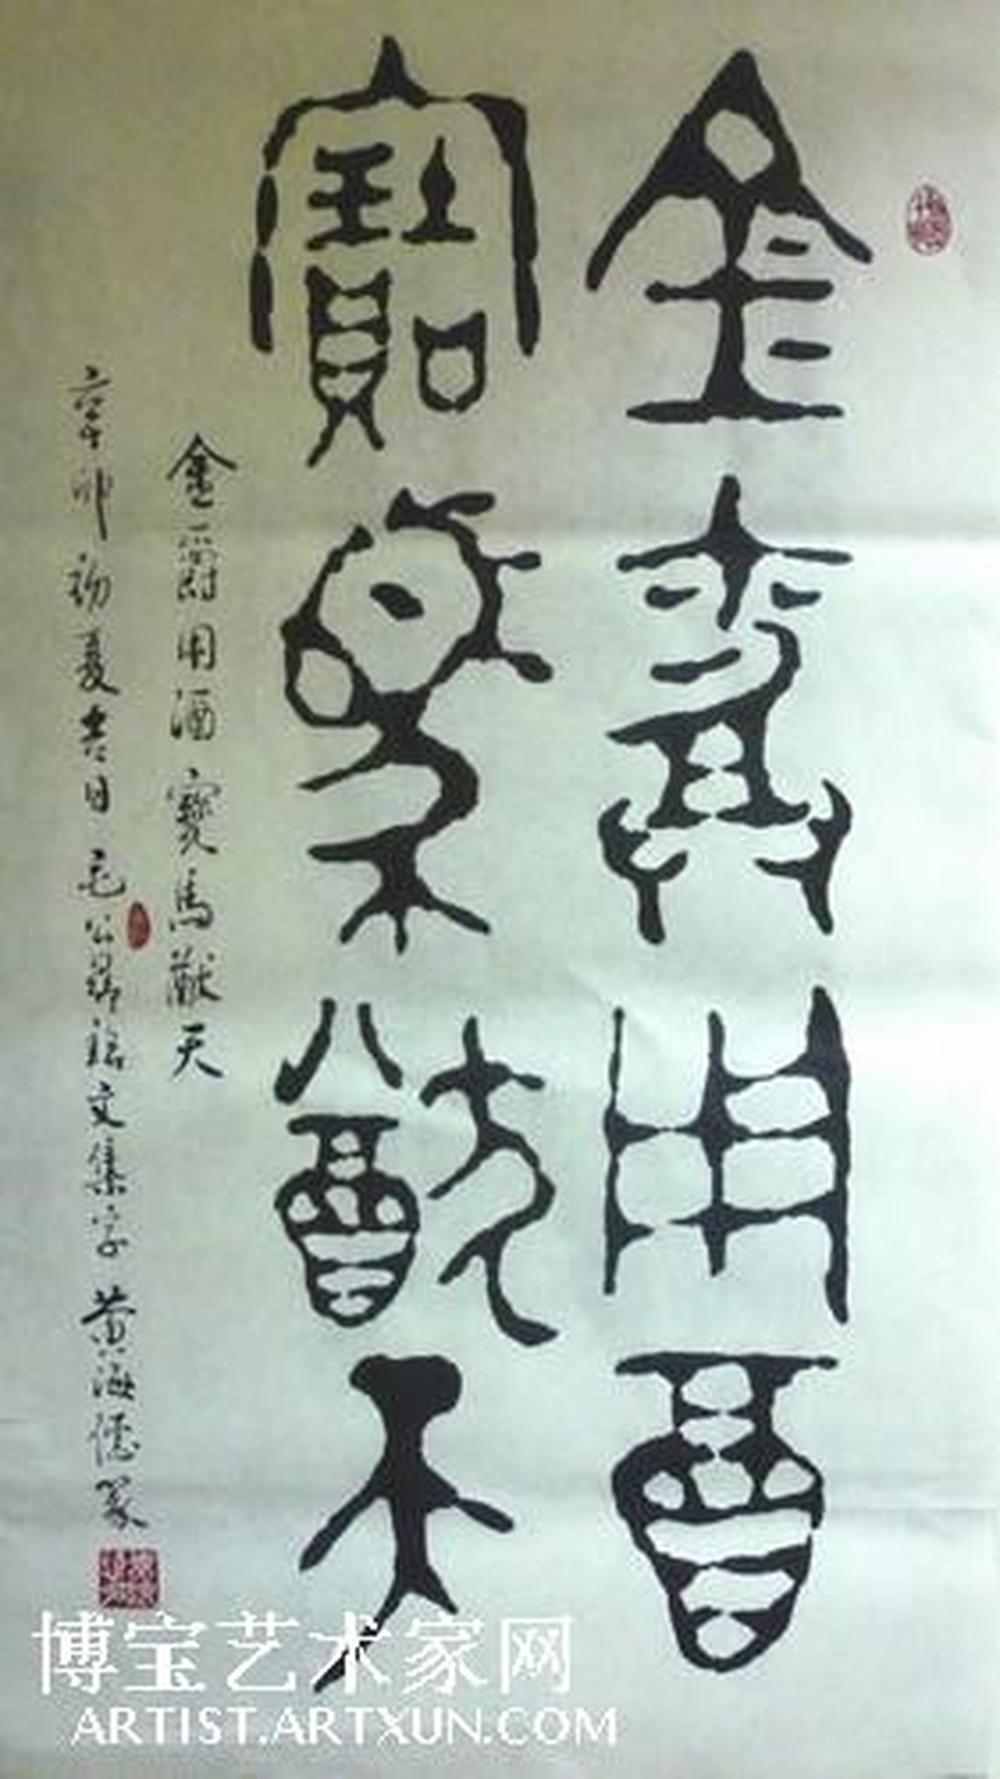 金爵用酉
寶馬猷天
金爵用酒寶馬猷天
辛卯初夏吉日毛公鼎銘文集字黃海儒篆
博宝艺术家网
ARTIST.ARTXUN.COM